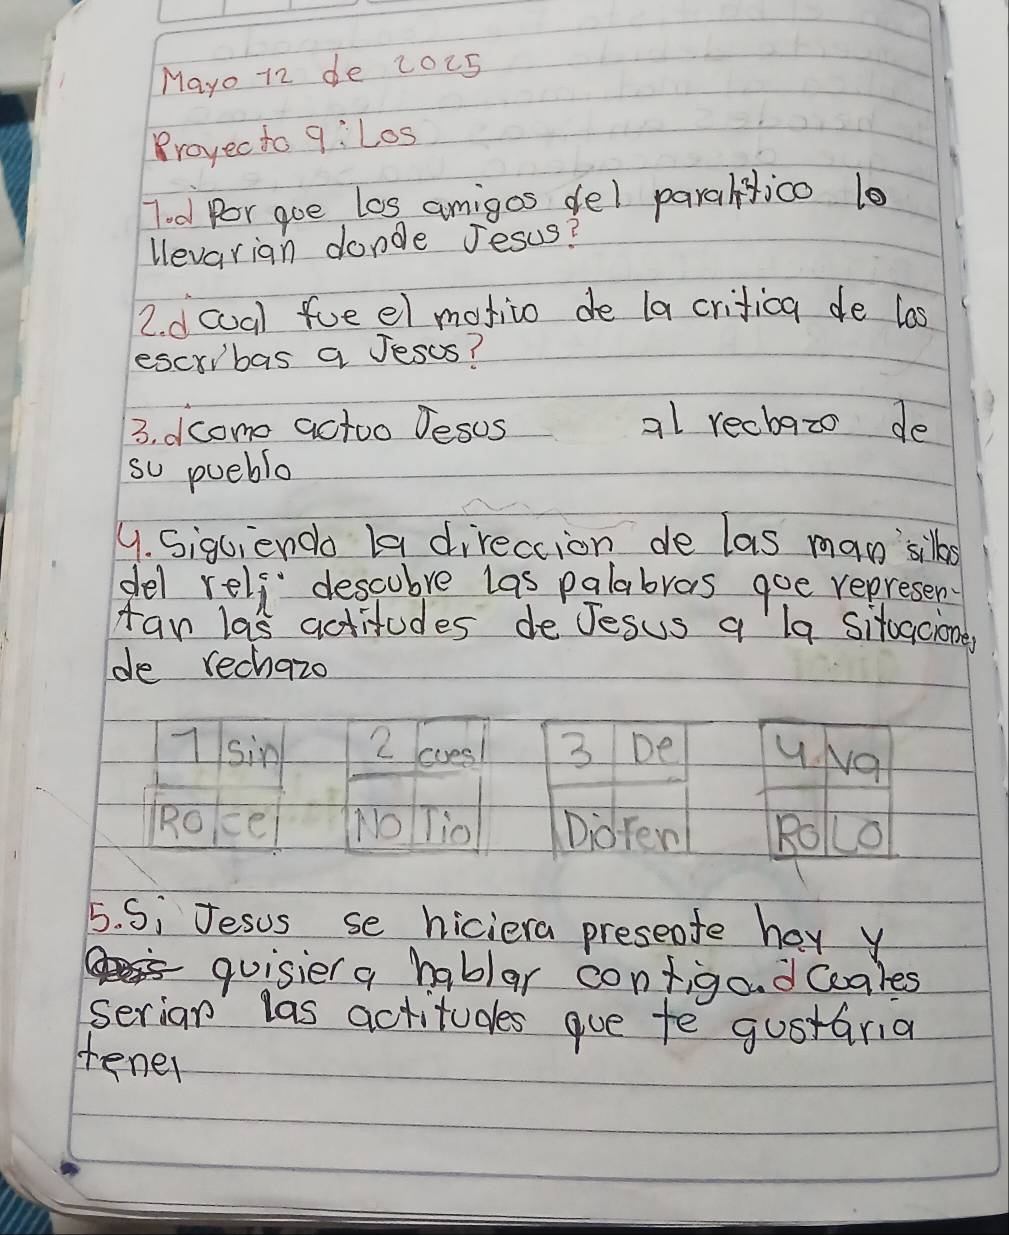 Mayo 12 de 2025
Proyecto 9: Los
1.¿Por que los amigos del paralitico lo
llevarian donde Jesus?
2.¿cual fue el motivo de la critica de los
escribas a Jesus?
3.¿como actuo Jesus al rechazo de
su pueblo
4. Siguiendo la direccion de las man sillas
del reli descubre las palabras que represen-
tan las actitudes de Jesus a la situaciones
de rechazo
1 sin 2 cues 3 De 4 Va
Ro ce No Tio Dio Fen Ro Lo
5. Si Jesus se hiciera presente hoy y
quisiera hablar contigo.¿cuales
serian las actitudes que te gustaria
tener